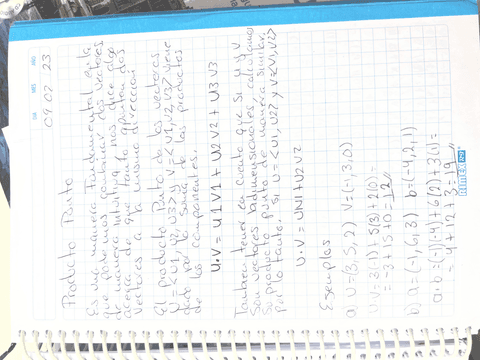 DIA MES AÑO
09 02 23
Producto Punto
Es una manera fundamental en la
que podemos combinar dos vectores
de manera intuitiva, nos dice algo
acerca de que tanto apuntan dos
vectores a la misma dirección
El producto Punto de los vectores
U = <U1, U2, U3> y V = <V1, V2, V3> viene
dado por la suma de los productos
de los componentes.
U·V = U1V1 + U2V2 + U3V3
Tambien tener en cuenta que si U y V
son vectores bidimensionales, calculamos
su producto punto de manera similar.
Por lo tanto. Si, U = <U1, U2> y V = <V1, V2>
U·V = U1V1 + U2V2
Ejemplos
a) U = (3, 5, 2) V = (-1, 3, 0)
U·V = 3(-1) + 5(3) + 2(0) =
= -3 + 15 + 0 = 12
b) a = (-1, 6, 3) b = (-4, 2, 1)
a·b = (-1)(-4) + 6(2) + 3(1) =
= 4 + 12 + 3 = 19
REMEX